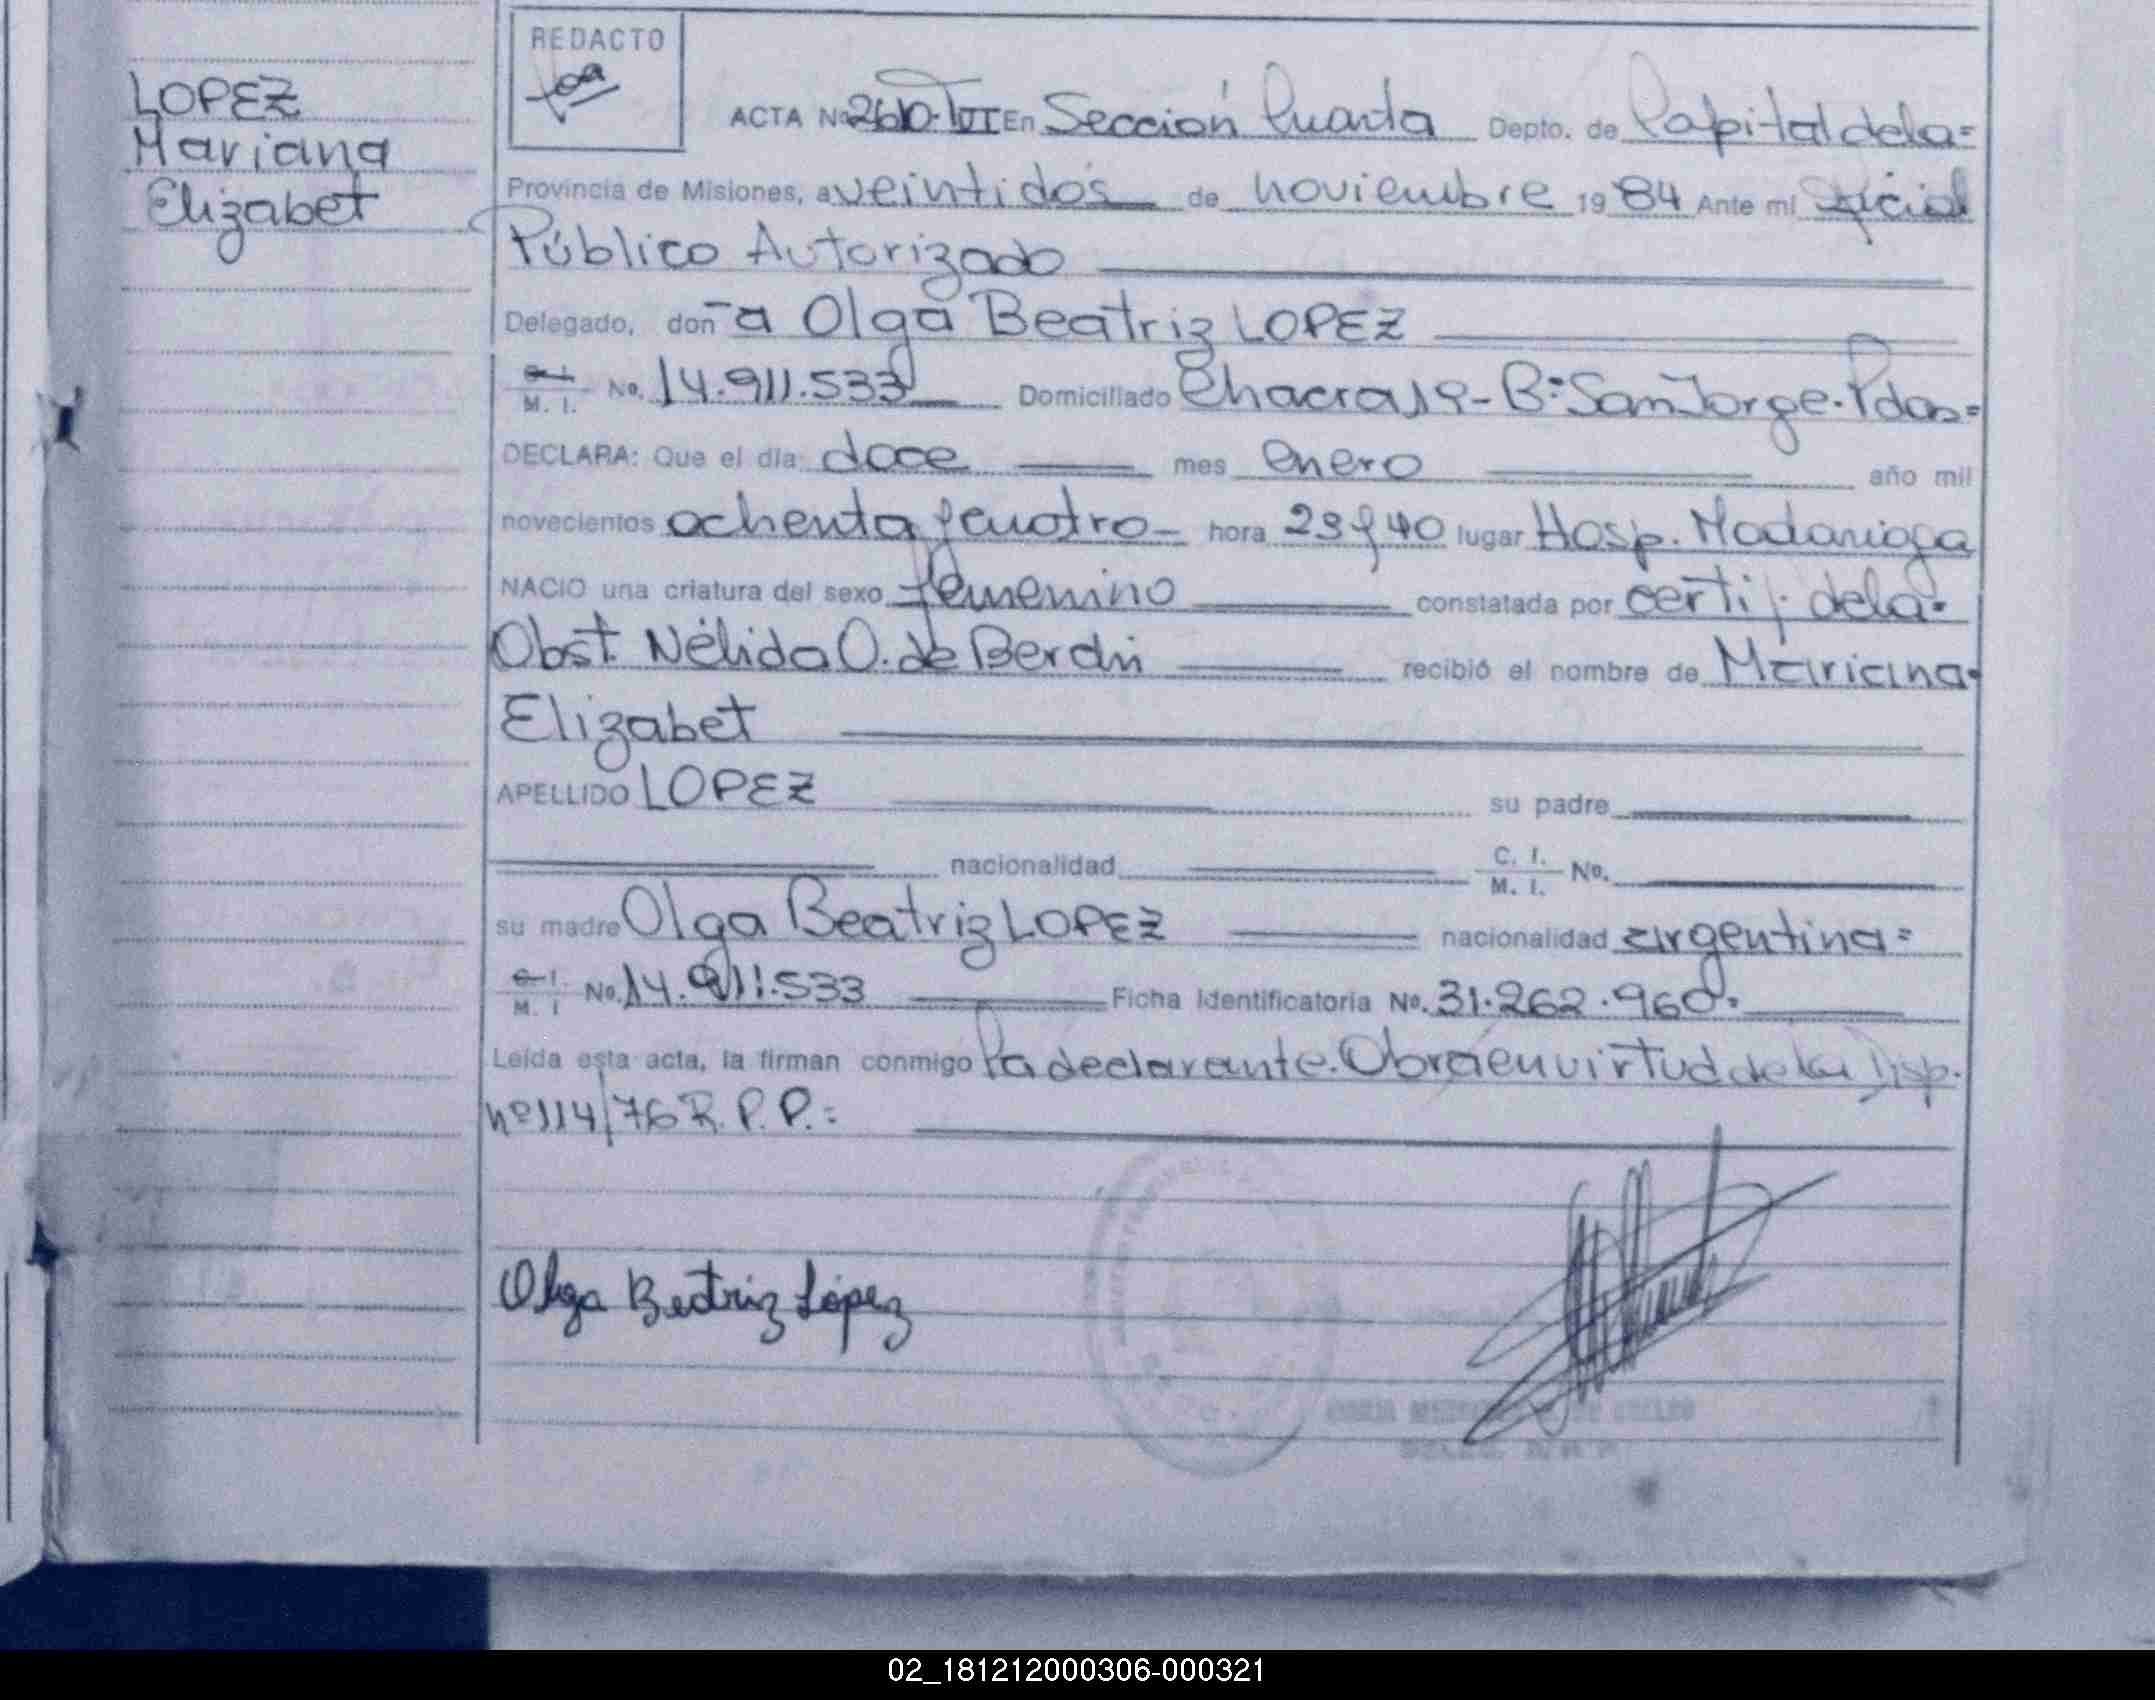 LOPEZ
Mariana
Elizabet
REDACTO
ACTA Nº 2610. TºII En Sección Cuarta Depto. de Capital de la=
Provincia de Misiones, a veintidós de noviembre 1984 Ante mi Oficial
Público Autorizado
Delegado, don-a Olga Beatriz LOPEZ
C. I. M. I. No. 14.911.533 Domiciliado Chacra 19-Bº San Jorge. Pdas=
DECLARA: Que el día doce mes enero año mil
novecientos ochenta y cuatro- hora 23 y 40 lugar Hosp. Madariaga
NACIO una criatura del sexo femenino constatada por certif. de la=
Obst. Nélida O. de Berdin recibió el nombre de Mariana=
Elizabet
APELLIDO LOPEZ su padre
nacionalidad C. I. M. I. No.
su madre Olga Beatriz LOPEZ nacionalidad argentina=
C. I. M. I No. 14.911.533 Ficha Identificatoria No. 31.262.960=
Leída esta acta, la firman conmigo la declarante. Obra en virtud de la Disp.
nº 114/76 R. P. P.=
Olga Beatriz López
02_181212000306-000321